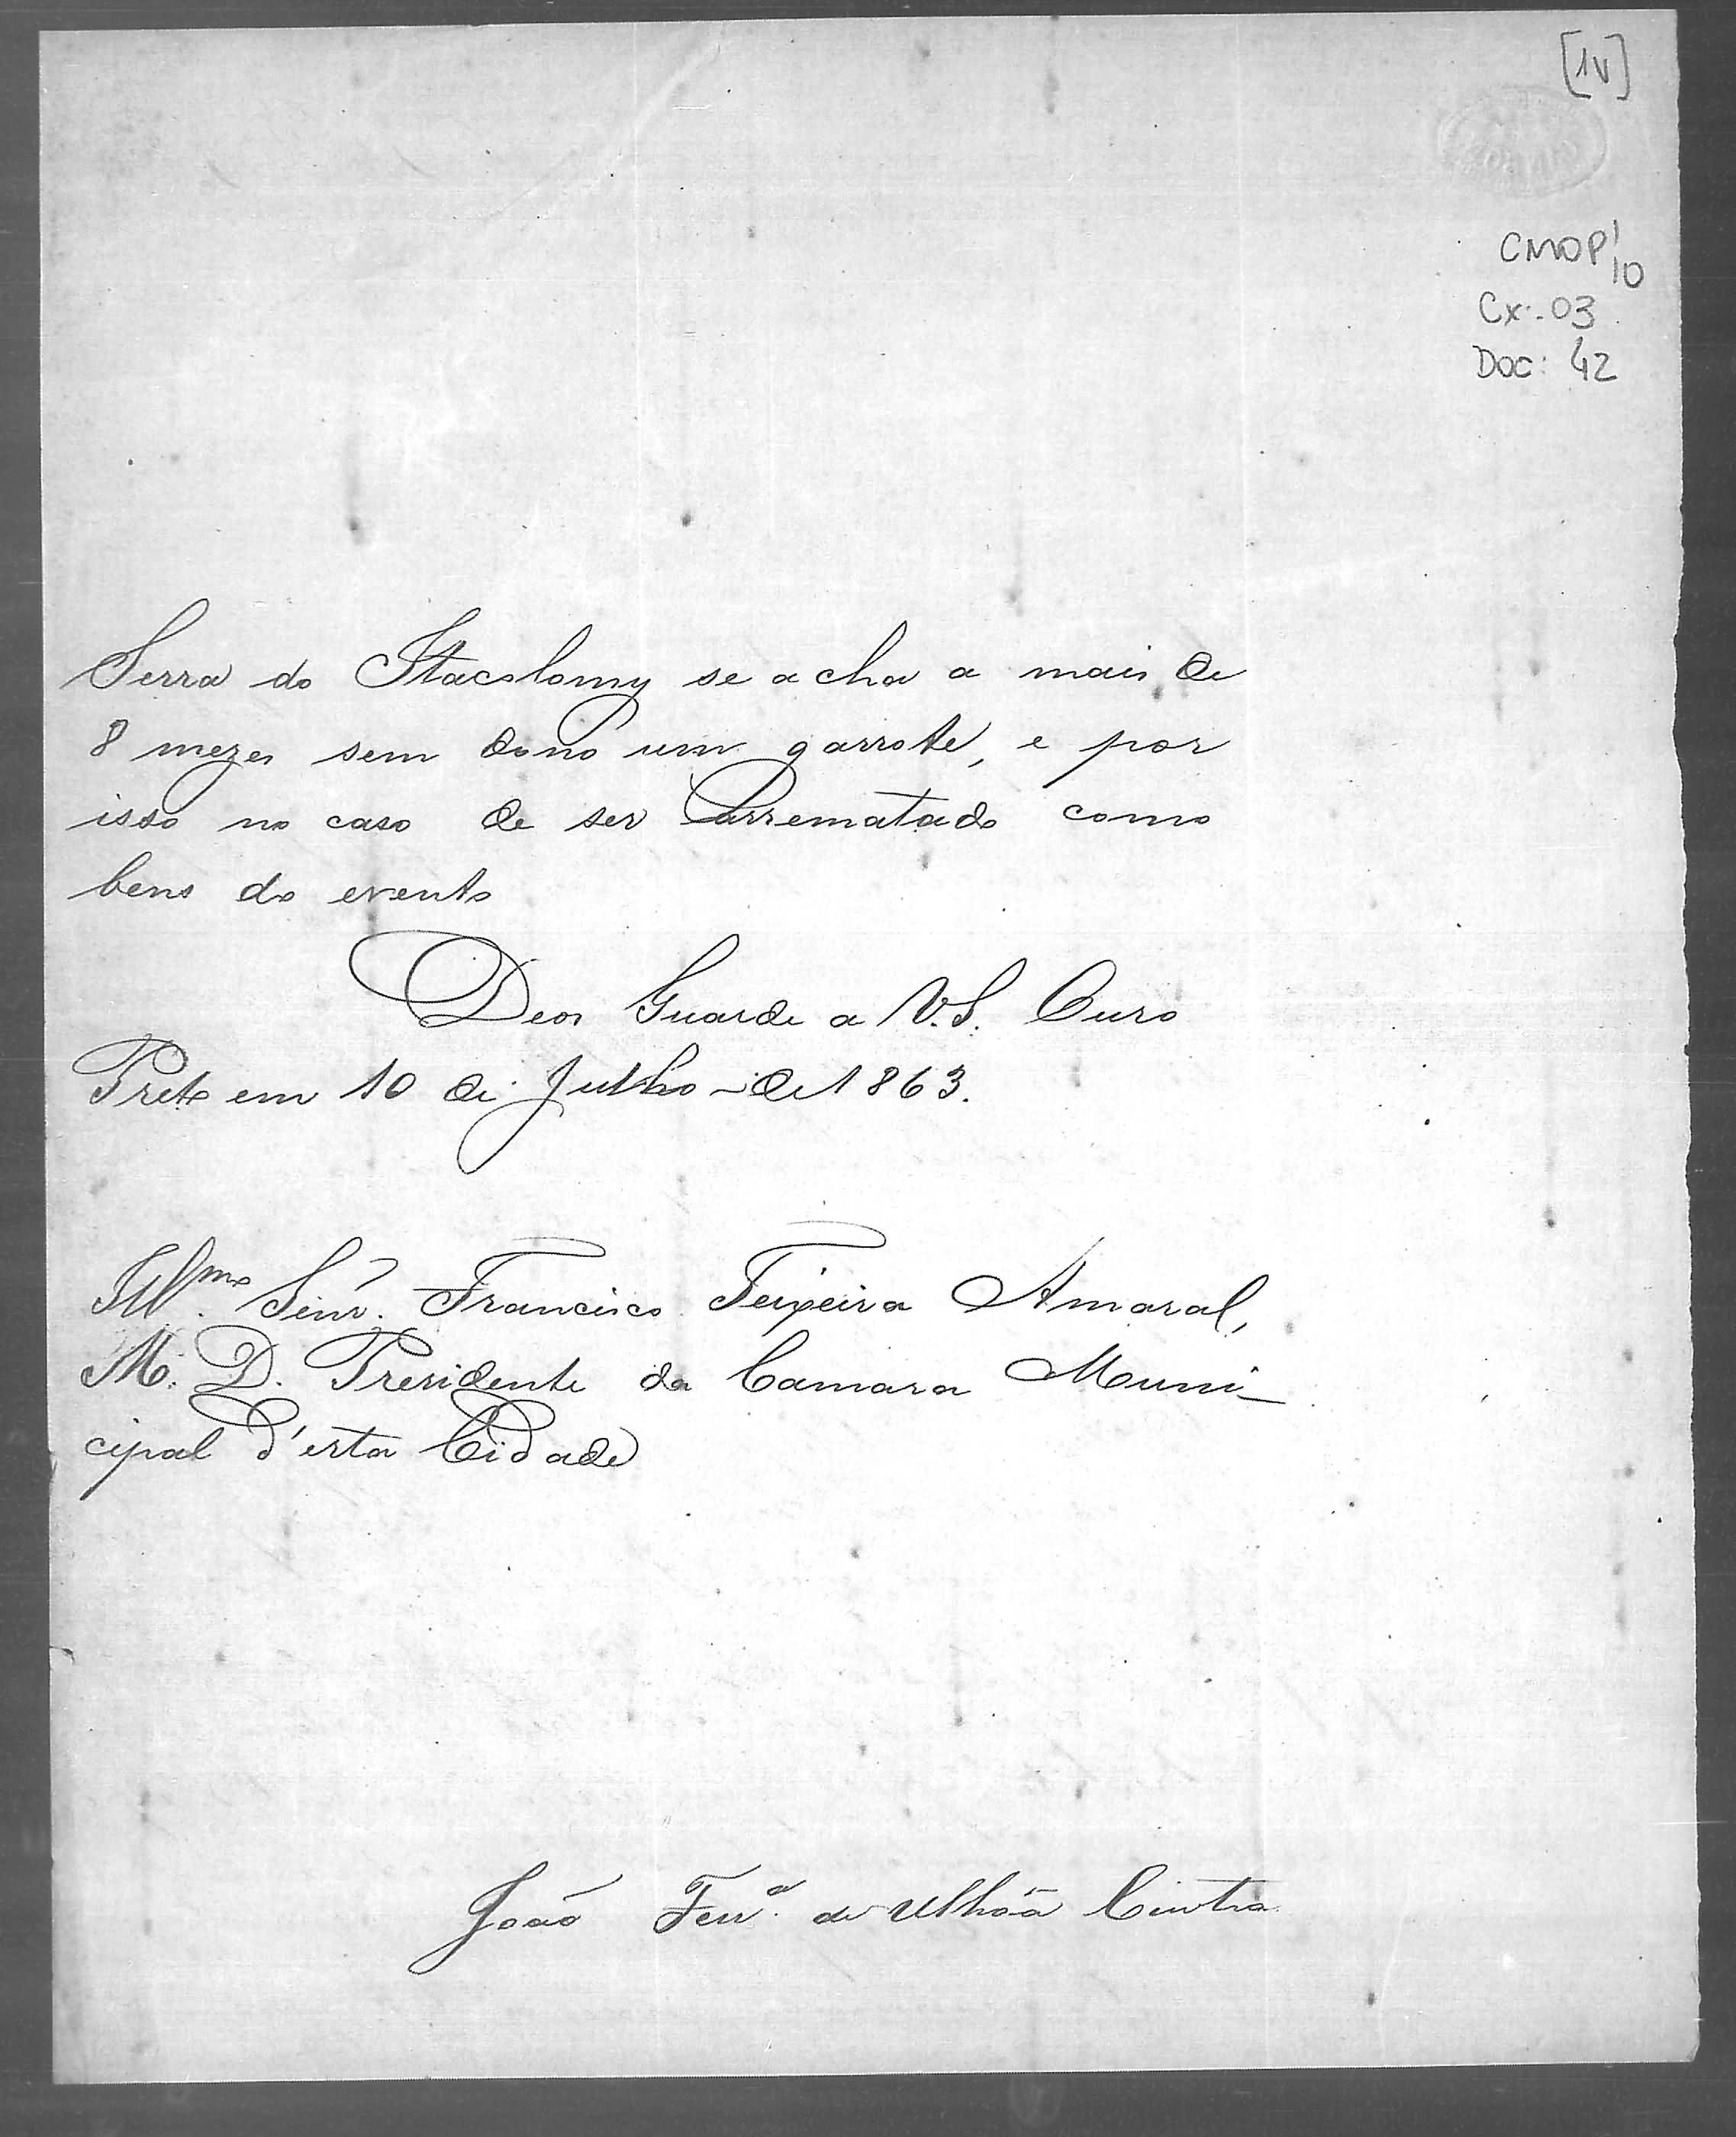 [1V]
CMOP 1/10
Cx:. 03
Doc: 42
Serra do Itacolomy se acha a mais de
8 mezes sem dono um garrote, e por
isso no caso de ser arrematado como
bens do evento
Deos Guarde a V.S. Ouro
Preto em 10 de Julho de 1863.
Illmo. Senr. Francisco Teixeira Amaral,
M. D. Presidente da Camara Muni-
cipal d'esta Cidade
João Ferra. de Ulhôa Cintra